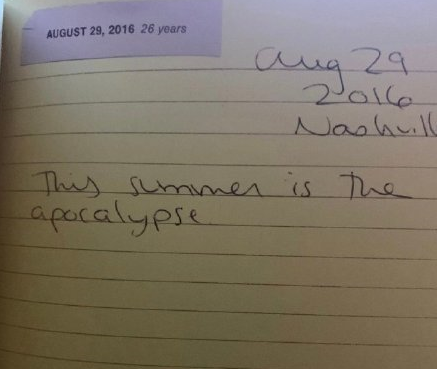 AUGUST 29, 2016 26 years
Aug 29
2016
Nashvill
This summer is the
apocalypse